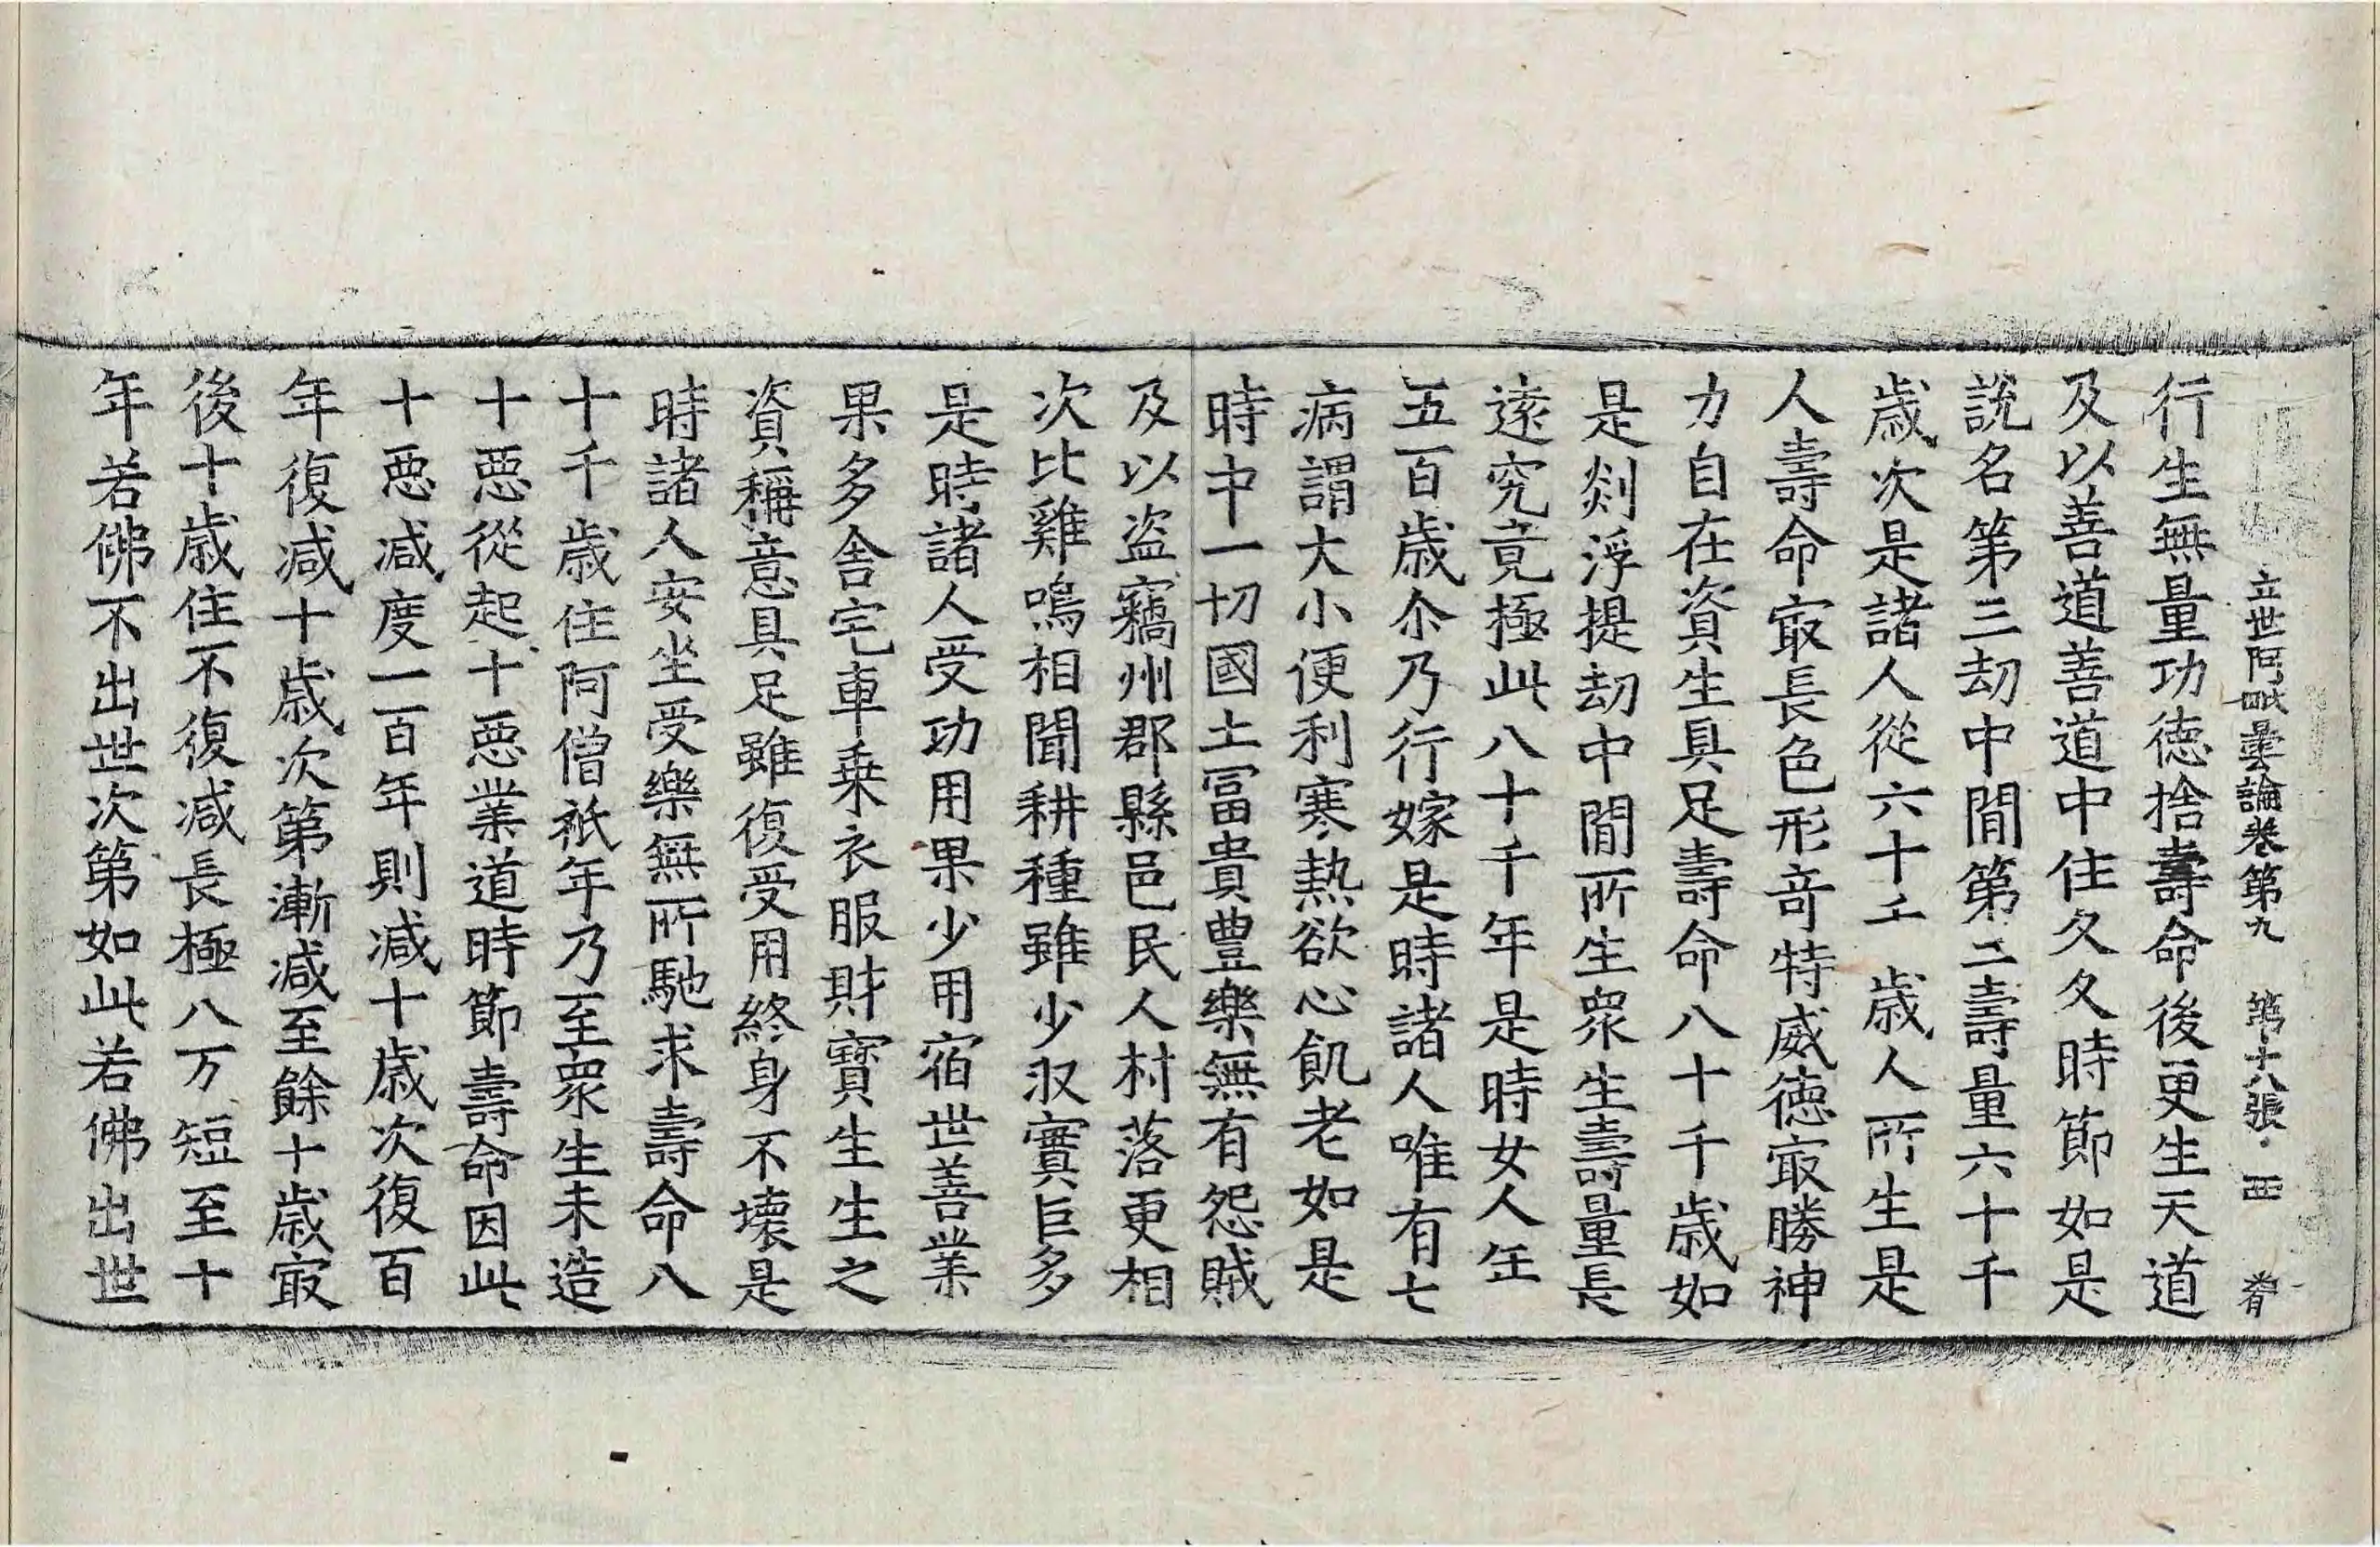 立世阿毗曇論卷第九 第十八張 西
行生無量功德捨壽命後更生天道
及以善道善道中住久久時節如是
說名第三劫中間第二壽量六十千
歲次是諸人從六十千歲人所生是
人壽命㝡長色形竒特威德㝡勝神
力自在資生具足壽命八十千歲如
是剡浮提劫中間所生衆生壽量長
遠究竟極此八十千年是時女人年
五百歲尒乃行嫁是時諸人唯有七
病謂大小便利寒熱欲心飢老如是
時中一切國土冨貴豊樂無有怨賊
及以盗竊州郡縣邑民人村落更相
次比雞鳴相聞耕種雖少収實巨多
是時諸人受功用果少用宿世善業
果多舍宅車乗衣服財寶生生之
資稱意具足雖復受用終身不壊是
時諸人安坐受樂無所馳求壽命八
十千歲住阿僧祇年乃至衆生未造
十惡從起十惡業道時節壽命因此
十惡减度一百年則减十歲次復百
年復减十歲次第漸减至餘十歲㝡
後十歲住不復减長極八万短至十
年若佛不出世次第如此若佛出世